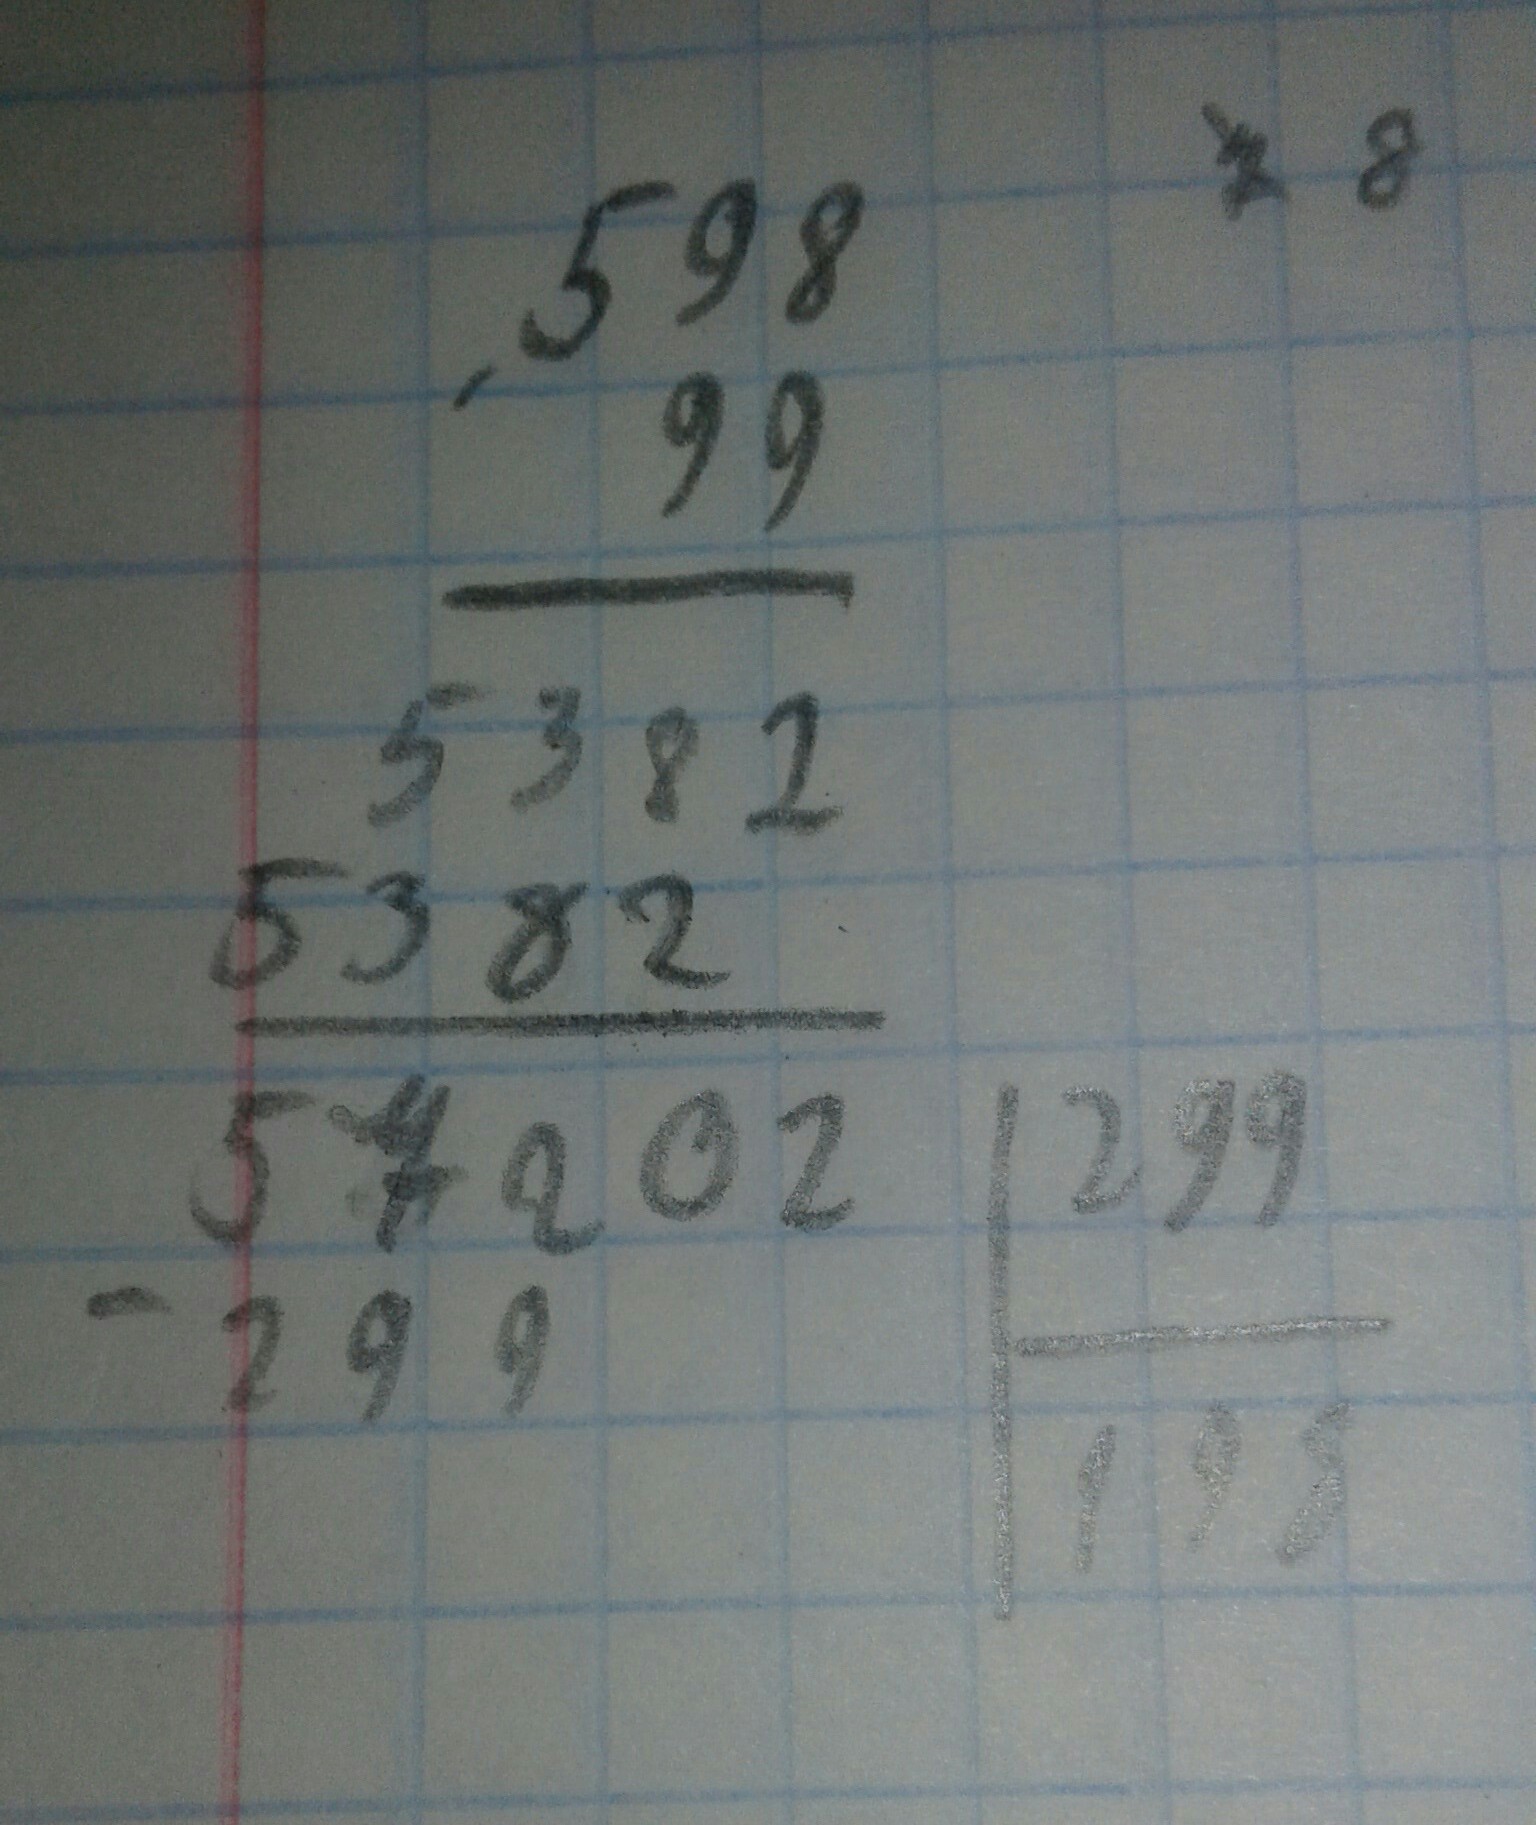 8
598
99
5382
5382
5 202 299
- 299 199